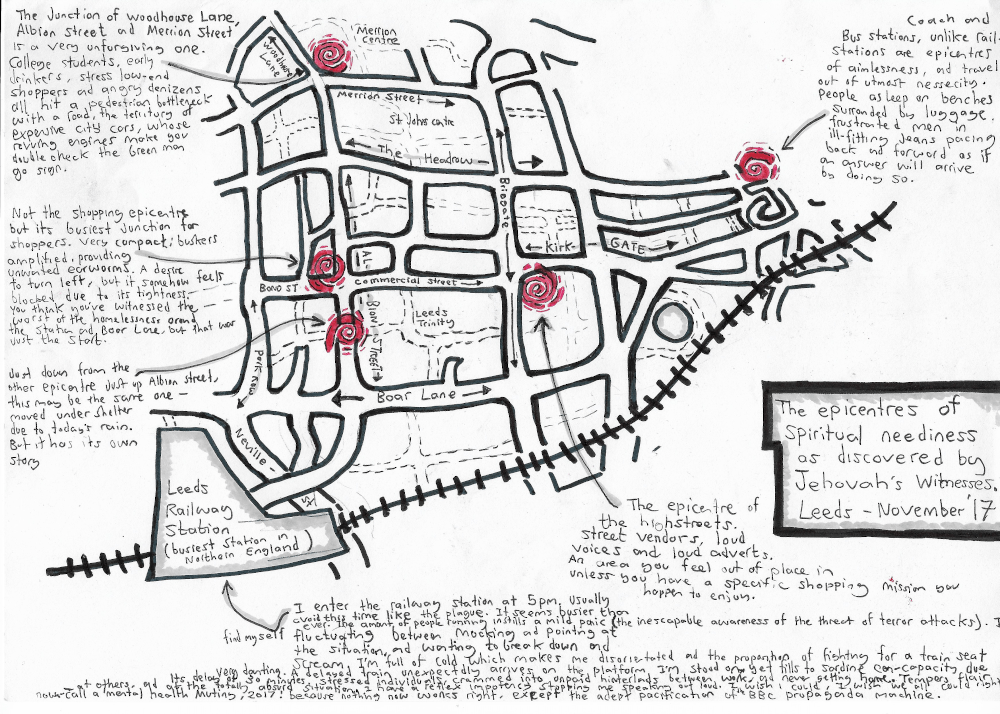 The Junction of Woodhouse Lane,
Albion Street and Merrion Street
is a very unforgiving one.
College students, early
drinkers, stress low-end
shoppers and angry denizens
all hit a pedestrian bottleneck
with a road, the territory of
expensive city cars, whose
revving engines make you
double check the Green man
go sign.
Not the shopping epicentre
but its busiest junction for
shoppers. Very compact; buskers
amplified, providing
unwanted earworms. A desire
to turn left, but it somehow feels
blocked due to its tightness.
You think you've witnessed the
worst of the homelessness around
the station and Boar Lane, but that was
just the start.
Just down from the
other epicentre just up Albion Street,
this may be the same one -
moved under shelter
due to today's rain.
But it has its own
story
Woodhouse
Lane
Merrion
Centre
Merrion Street
St Johns Centre
The Headrow
Briggate
Kirk
GATE
AL-
BION STREET
BOND ST
commercial street
Leeds
Trinity
Park Row
Boar Lane
Neville
St
Leeds
Railway
Station
(busiest station in
Northern England)
Coach and
Bus stations, unlike rail-
stations are epicentres
of aimlessness, and travel
out of utmost nessecity.
People asleep on benches
surronded by luggage.
frustrated men in
ill-fitting jeans pacing
back and forward as if
an answer will arrive
by doing so.
The epicentres of
Spiritual neediness
as discovered by
Jehovah's Witnesses.
Leeds - November '17
The epicentre of
the highstreets.
Street vendors, loud
voices and loud adverts.
An area you feel out of place in
unless you have a specific shopping mission you
happen to enjoy.
I enter the railway station at 5pm, usually
avoid this time like the plague. It seems busier than
ever. The amount of people running instills a mild panic (the inescapable awareness of the threat of terror attacks). I
find myself fluctuating between mocking and pointing at
the situation, and wanting to break down and
scream. I'm full of cold which makes me disorientated and the proportion of fighting for a train seat
very daunting. A delayed train unexpectedly arrives on the platform I'm stood on, yet fills to sardine can-capacity due
Its delay by 30 minutes, stressed individuals, crammed into unpaid hinterlands between work, and never getting home. Tempers flair
at others, and at the totally absurd situation. I have a reflex impotency stopping me speaking out loud. I wish I could, I wish we all could right
now. Call a mental health mutiny, eh? because nothing now works right, except the adept pacification at BBC propaganda machine.